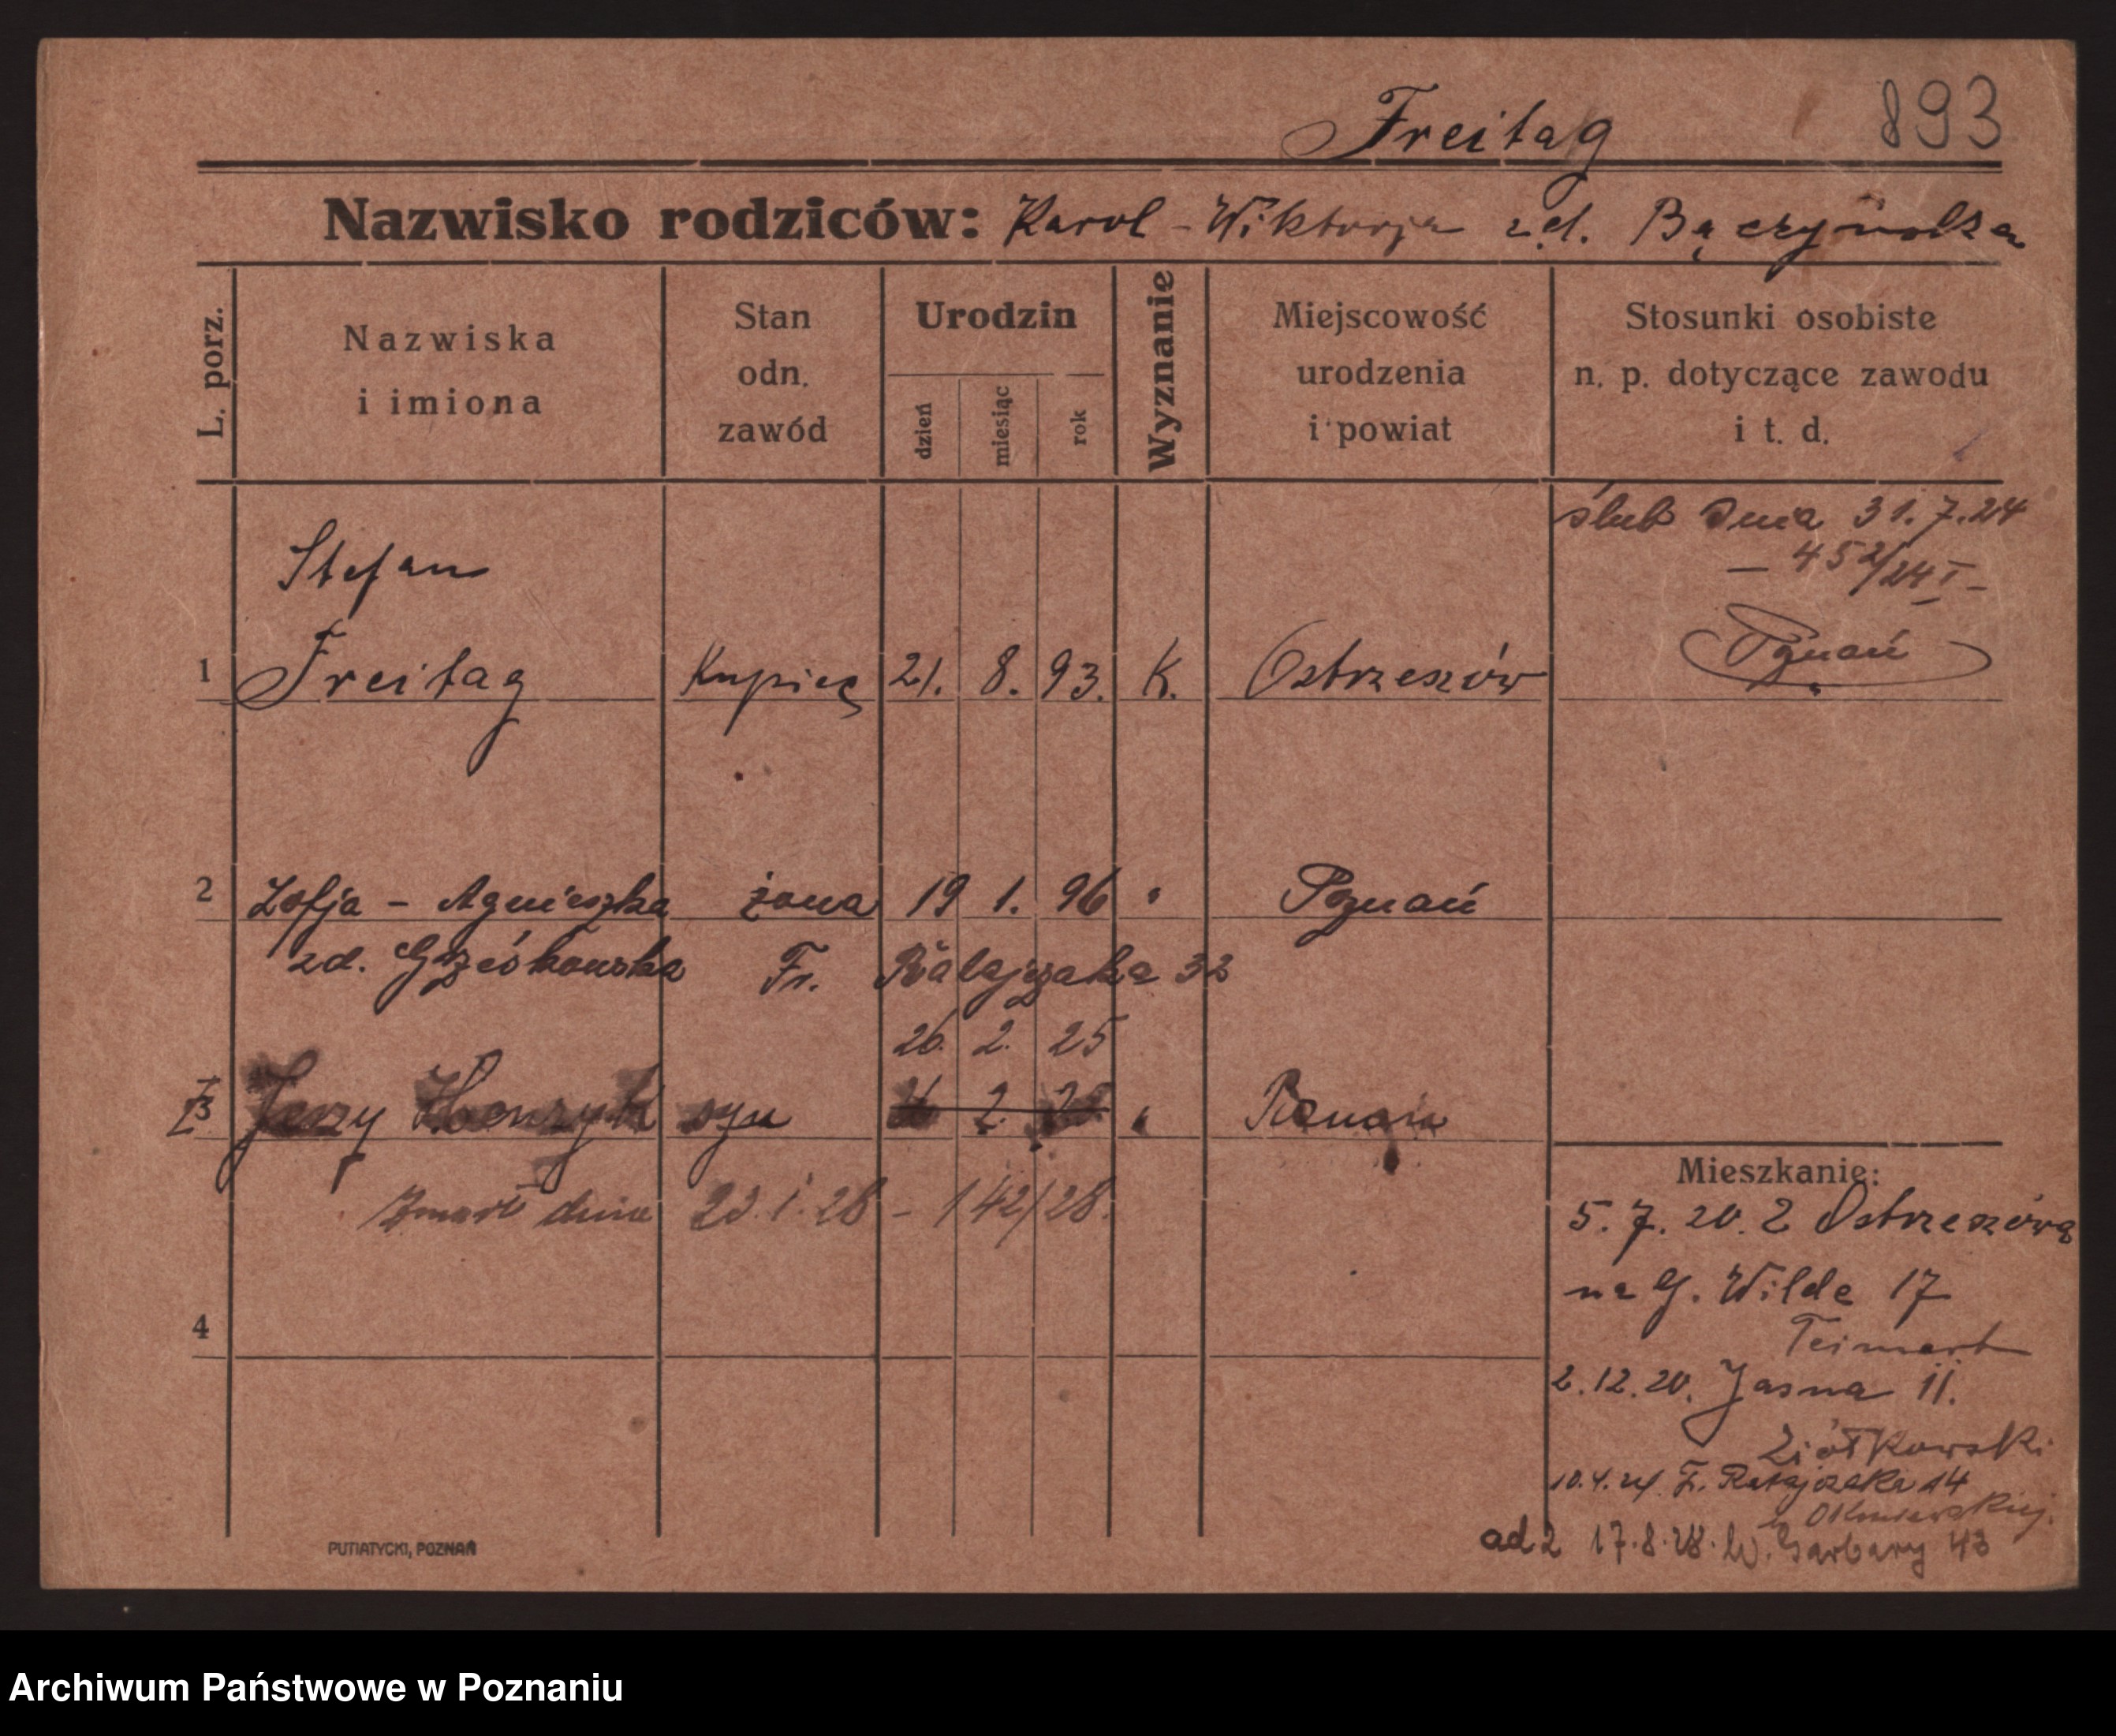 Freitag 893
Nazwisko rodziców: Karol - Wiktorja zd. Bączyńska
L. porz.
Nazwiska
i imiona
Stan
odn.
zawód
Urodzin
dzień
miesiąc
rok
Wyznanie
Miejscowość
urodzenia
i powiat
Stosunki osobiste
n. p. dotyczące zawodu
i t. d.
ślub dnia 31.7.24
— 452/24 I —
Poznań
Stefan
1 Freitag Kupiec 21. 8. 93. K. Ostrzeszów
2 Zofja - Agnieszka żona 19 1. 96 " Poznań
zd. Fr. Ratajczaka 32
26. 2. 25
3 Jerzy Henryk syn 2. " Poznań
Zmarł dnia 1.28 - 142/28.
4
Mieszkanie:
5. 7. 20. z Ostrzeszowa
na G. Wilde 17
2.12.20. Jasna 11.
Ziółkowski
10.4.24 Fr. Ratajczaka 14
ad 2 17.8.28. W. Garbary 43
PUTIATYCKI, POZNAŃ
Archiwum Państwowe w Poznaniu